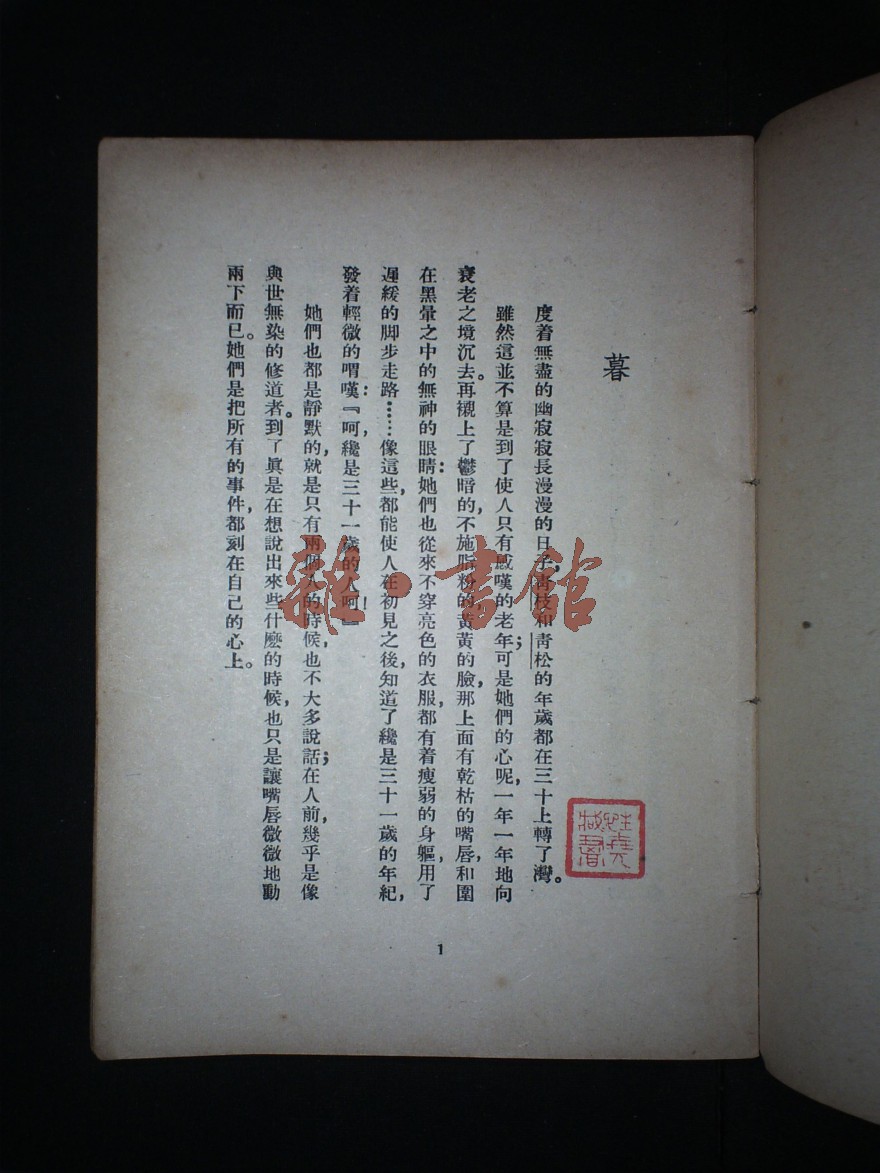 暮
度着無盡的幽寂寂長漫漫的日子，青枝和青松的年歲都在三十上轉了灣。
雖然這並不算是到了使人只有感嘆的老年；可是她們的心呢，一年一年地向
衰老之境沉去。再襯上了鬱暗的，不施脂粉的，黃黃的臉，那上面有乾枯的嘴唇，和圍
在黑暈之中的無神的眼睛：她們也從來不穿亮色的衣服，都有着瘦弱的身軀，用了
遲緩的脚步走路……像這些，都能使人在初見之後，知道了纔是三十一歲的年紀，
發着輕微的喟嘆：『呵，纔是三十一歲的人呵！』
她們也都是靜默的，就是只有兩個人的時候，也不大多說話；在人前，幾乎是像
與世無染的修道者。到了眞是在想說出來些什麽的時候，也只是讓嘴唇微微地動
兩下而已。她們是把所有的事件，都刻在自己的心上。
1
雜·書館